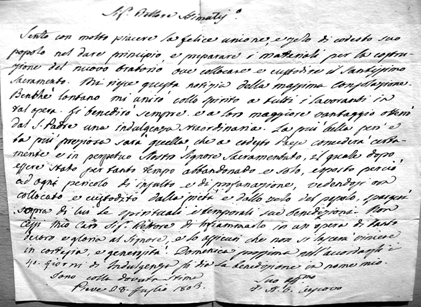 Sig.r Rettore Stimatis.o
Sento con molto piacere la felice unione, e zelo di codesto suo
popolo nel dare principio, e preparare i materiali per la costru-
zione del nuovo Oratorio ove collocare e custodire il Santissimo
Sacramento. Mi riesce questa notizia della massima Consolazione.
Benché lontano mi unirò collo spirito a tutti i lavoranti in
tal opera. Li benedirò sempre, e a loro maggiore vantaggio
dal S. Padre una indulgenza straordinaria. La più bella però e
la più preziosa sarà quella, che a codesto Paese concederà certa-
mente e in perpetuo Nostro Signore Sacramentato, il quale dopo
essere stato per tanto tempo abbandonato e solo, esposto perciò
ad ogni pericolo di insulto e di profanazione, vedendosi ora
collocato e custodito dalla pietà e dallo zelo del popolo,
sopra di lui le spirituali e temporali sue benedizioni. Non
cessi mio Caro Sig. Rettore di infiammarlo in un opera di tanto
decoro e gloria al Signore, e lo assicuri che non si lascerà vincere
in cortesia, e generosità. Domenica prossima nell'accordargli i
40. giorni di Indulgenza li dia la benedizione in nome mio.
Sono colla
Pieve 28. Luglio 1803.
Suo